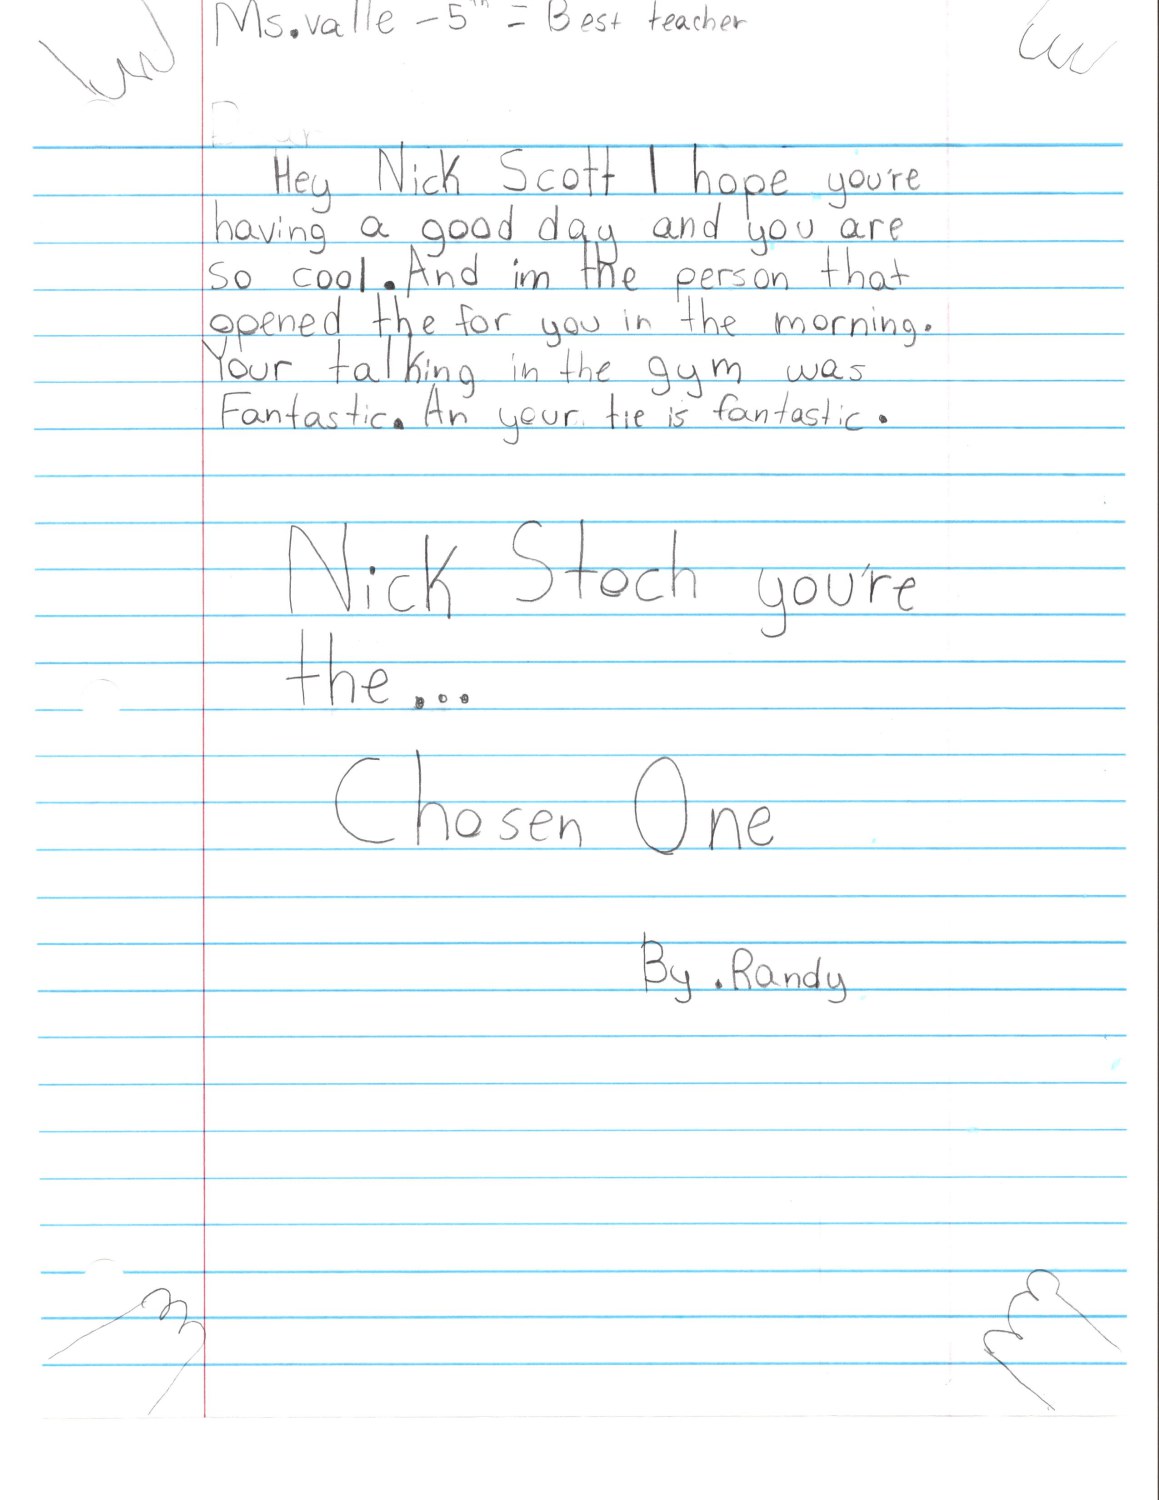 Ms.valle - 5th = Best teacher
Hey Nick Scott I hope you're
having a good day and you are
so cool. And im the person that
opened the for you in the morning.
Your talking in the gym was
Fantastic. An your tie is fantastic.
Nick Stoch you're
the...
Chosen One
By .Randy